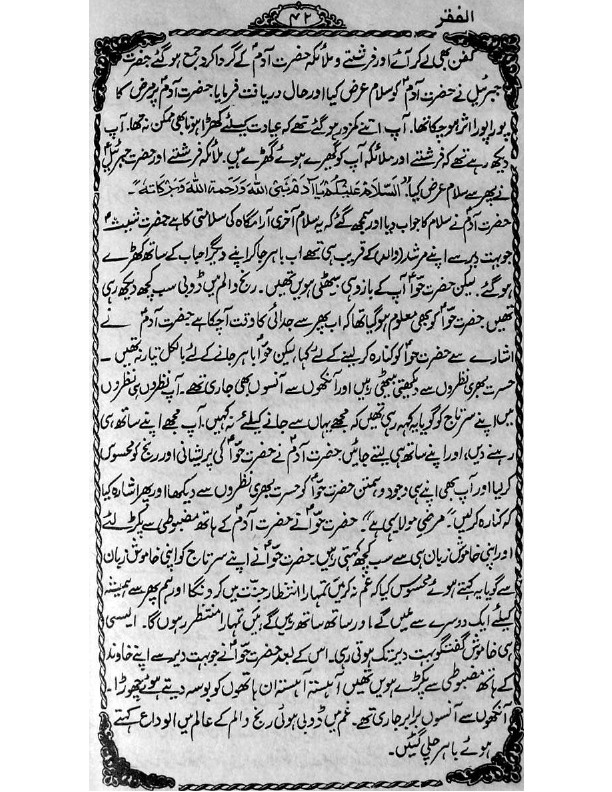 الفقر
۴۲
کفن بھی لے کر آئے اور فرشتے و ملائکہ حضرت آدمؑ کے گردا گرد جمع ہو گئے حضرت
جبرئیل نے حضرت آدمؑ کو سلام عرض کیا اور حال دریافت فرمایا حضرت آدمؑ پر مرض کا
پورا پورا اثر ہو چکا تھا۔ آپ اتنے کمزور ہو گئے تھے کہ عبادت کیلئے کھڑا ہونا بھی ممکن نہ تھا۔ آپ
دیکھ رہے تھے کہ فرشتے اور ملائکہ آپ کو گھیرے ہوئے کھڑے ہیں۔ ملائکہ فرشتے اور حضرت جبرئیلؑ
نے پھر سے سلام عرض کیا۔ "السلام علیکم یا آدم نبی اللہ ورحمۃ اللہ وبرکاتہ"۔
حضرت آدمؑ نے سلام کا جواب دیا اور سمجھ گئے کہ یہ سلام آخری آرامگاہ کی سلامتی کا ہے حضرت شیثؑ
جو بہت دیر سے اپنے مرشد (والد) کے قریب ہی تھے اب باہر جا کر اپنے دیگر احباب کے ساتھ کھڑے
ہو گئے۔ لیکن حضرت حوّاؑ آپ کے بازو ہی بیٹھی ہویں تھیں۔ رنج و الم میں ڈوبی سب کچھ دیکھ رہی
تھیں حضرت حوّاؑ کو بھی معلوم ہو گیا تھا کہ اب پھر سے جدائی کا وقت آ چکا ہے حضرت آدمؑ نے
اشارے سے حضرت حوّاؑ کو کنارہ کر لینے کے لئے کہا، لیکن حوّاؑ باہر جانے کے لئے بالکل تیار نہ تھیں۔
حسرت بھری نظروں سے دیکھتی بیٹھی رہیں اور آنکھوں سے آنسوں بھی جاری تھے۔ آپ نظروں ہی نظروں
میں اپنے سرتاج کو گویا یہ کہہ رہی تھیں کہ مجھے یہاں سے جانے کیلئے نہ کہیں، آپ مجھے اپنے ساتھ ہی
رہنے دیں، اور اپنے ساتھ ہی لیتے جائیں حضرت آدمؑ نے حضرت حوّاؑ کی پریشانی اور رنج کو محسوس
کر لیا اور آپ بھی اپنے ہی وجود و ہمتن حضرت حوّاؑ کو حسرت بھری نظروں سے دیکھا اور پھر اشارہ کیا
کہ کنارہ کر لیں۔ "مرضیٔ مولا یہی ہے"۔ حضرت حوّاؑ نے حضرت آدمؑ کے ہاتھ مضبوطی سے پکڑ لئے
اور اپنی خاموش زبان ہی سے سب کچھ کہتی رہیں حضرت حوّاؑ نے اپنے سرتاج کو اپنی خاموش زبان
سے گویا یہ کہتے ہوئے محسوس کیا کہ غم نہ کریں تمہارا انتظار جنت میں کرونگا اور ہم پھر سے ہمیشہ
کیلئے ایک دوسرے سے ملیں گے اور ساتھ ساتھ رہیں گے میں تمہارا منتظر رہوں گا۔ ایسی
ہی خاموش گفتگو بہت دیر تک ہوتی رہی۔ اس کے بعد حضرت حوّاؑ نے جو بہت دیر سے اپنے خاوند
کے ہاتھ مضبوطی سے پکڑے ہویں تھیں آہستہ آہستہ ان ہاتھوں کو بوسہ دیتے ہوئے چھوڑا۔
آنکھوں سے آنسوں برابر جاری تھے۔ غم میں ڈوبی ہوئی رنج و الم کے عالم میں الوداع کہتے
ہوئے باہر چلی گئیں۔